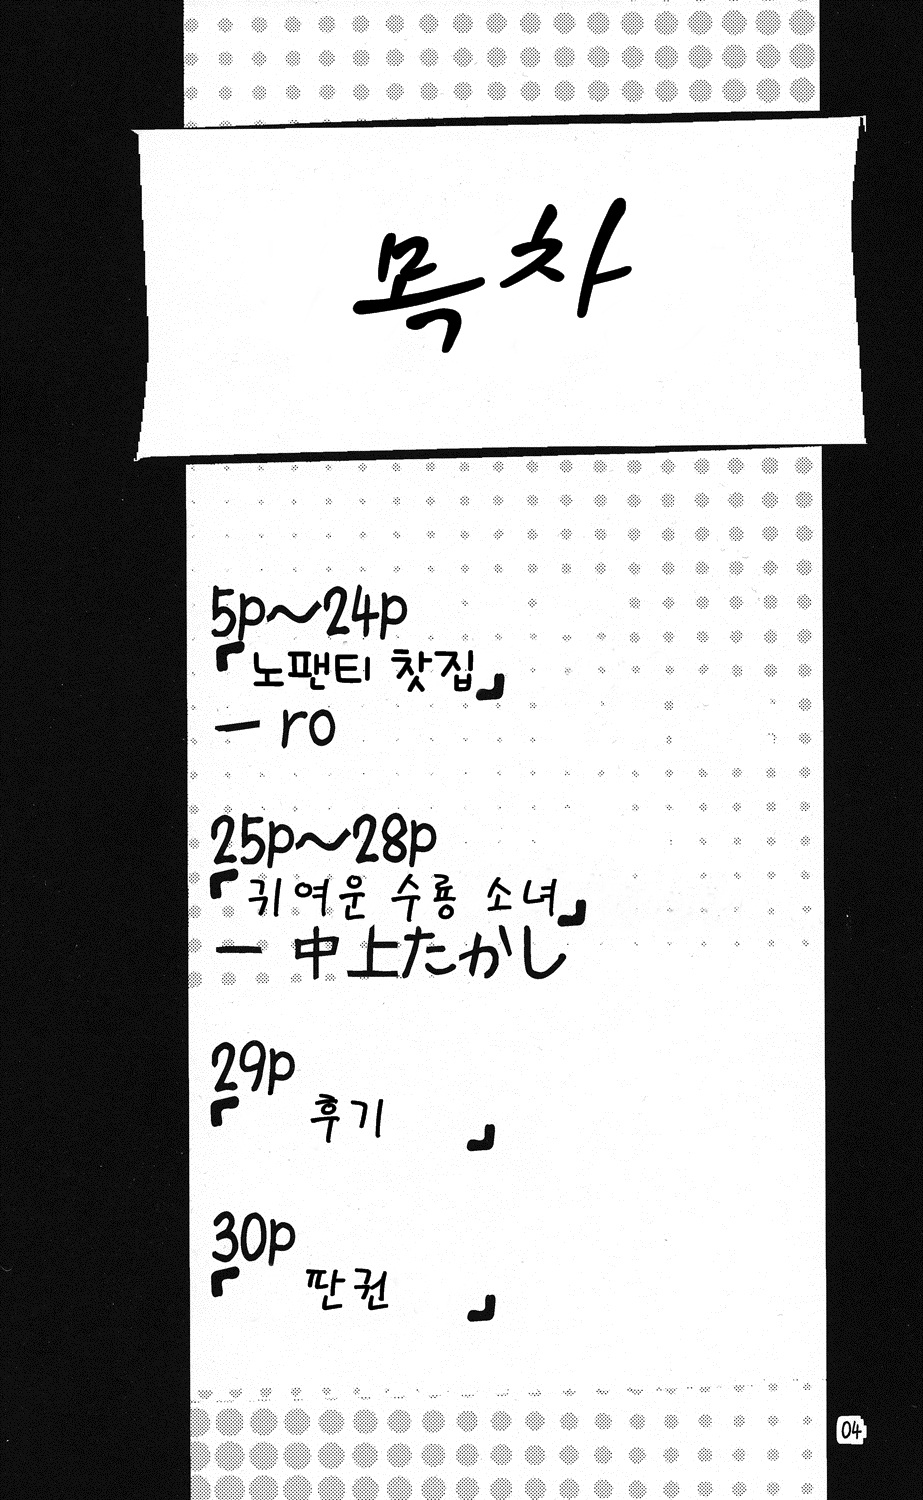 목차
5p～24p
『노팬티 찻집』
ー ro
25p～28p
『귀여운 수룡 소녀』
ー 中上たかし
29p
『 후기 』
30p
『 판권 』
04